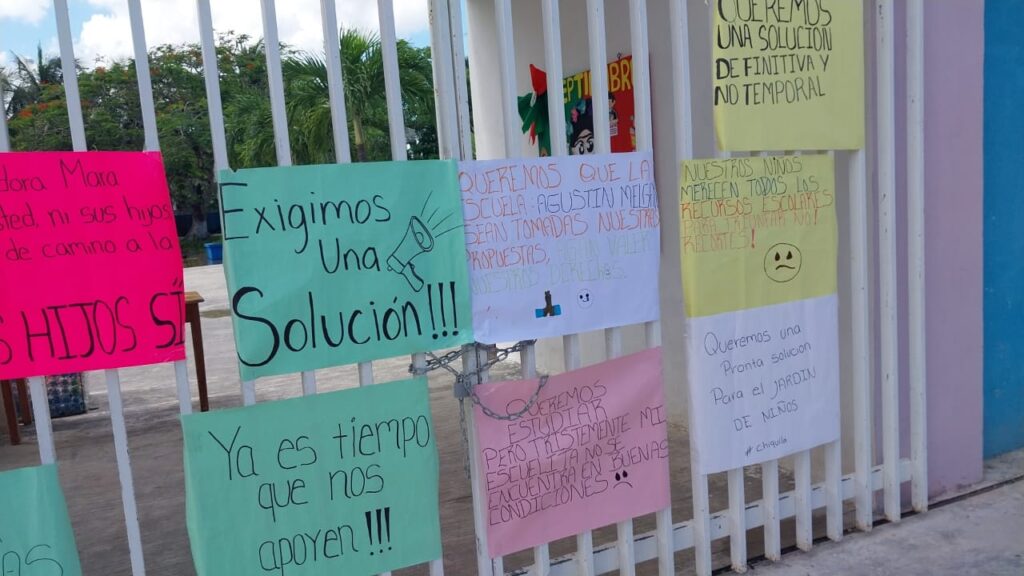 dora Mara
sted, ni sus hijos
de camino a la
S HIJOS SÍ
Exigimos
Una
Solución!!!
QUEREMOS QUE LA
ESCUELA: AGUSTIN MELGAR
SEAN TOMADAS NUESTRAS
PROPUESTAS, HAGAN VALER
NUESTROS DERECHOS.
QUEREMOS
UNA SOLUCIÓN
DEFINITIVA Y
NO TEMPORAL
SEPTIEMBRE
NUESTROS NIÑOS
MERECEN TODOS LOS
RECURSOS ESCOLARES
PARA
NO!
RECORTES!
Queremos una
Pronta solución
Para el JARDIN
DE NIÑOS
# chiquila
Ya es tiempo
que nos
apoyen!!!
QUEREMOS
ESTUDIAR
PERO TRISTEMENTE MI
ESCUELITA NO SE
ENCUENTRA EN BUENAS
CONDICIONES